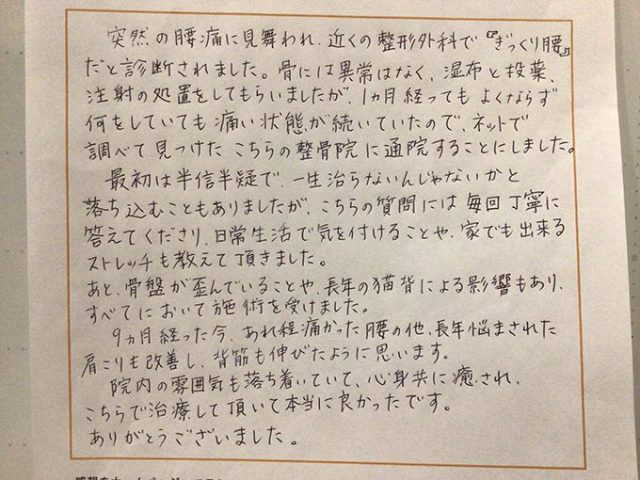 突然の腰痛に見舞われ、近くの整形外科で『ぎっくり腰』
だと診断されました。骨には異常はなく、湿布と投薬、
注射の処置をしてもらいましたが、1ヵ月経ってもよくならず
何をしていても痛い状態が続いていたので、ネットで
調べて見つけたこちらの整骨院に通院することにしました。
最初は半信半疑で、一生治らないんじゃないかと
落ち込むこともありましたが、こちらの質問には毎回丁寧に
答えてくださり、日常生活で気を付けることや、家でも出来る
ストレッチも教えて頂きました。
あと、骨盤が歪んでいることや、長年の猫背による影響もあり、
すべてにおいて施術を受けました。
9ヵ月経った今、あれ程痛かった腰の他、長年悩まされた
肩こりも改善し、背筋も伸びたように思います。
院内の雰囲気も落ち着いていて、心身共に癒され、
こちらで治療して頂いて本当に良かったです。
ありがとうございました。